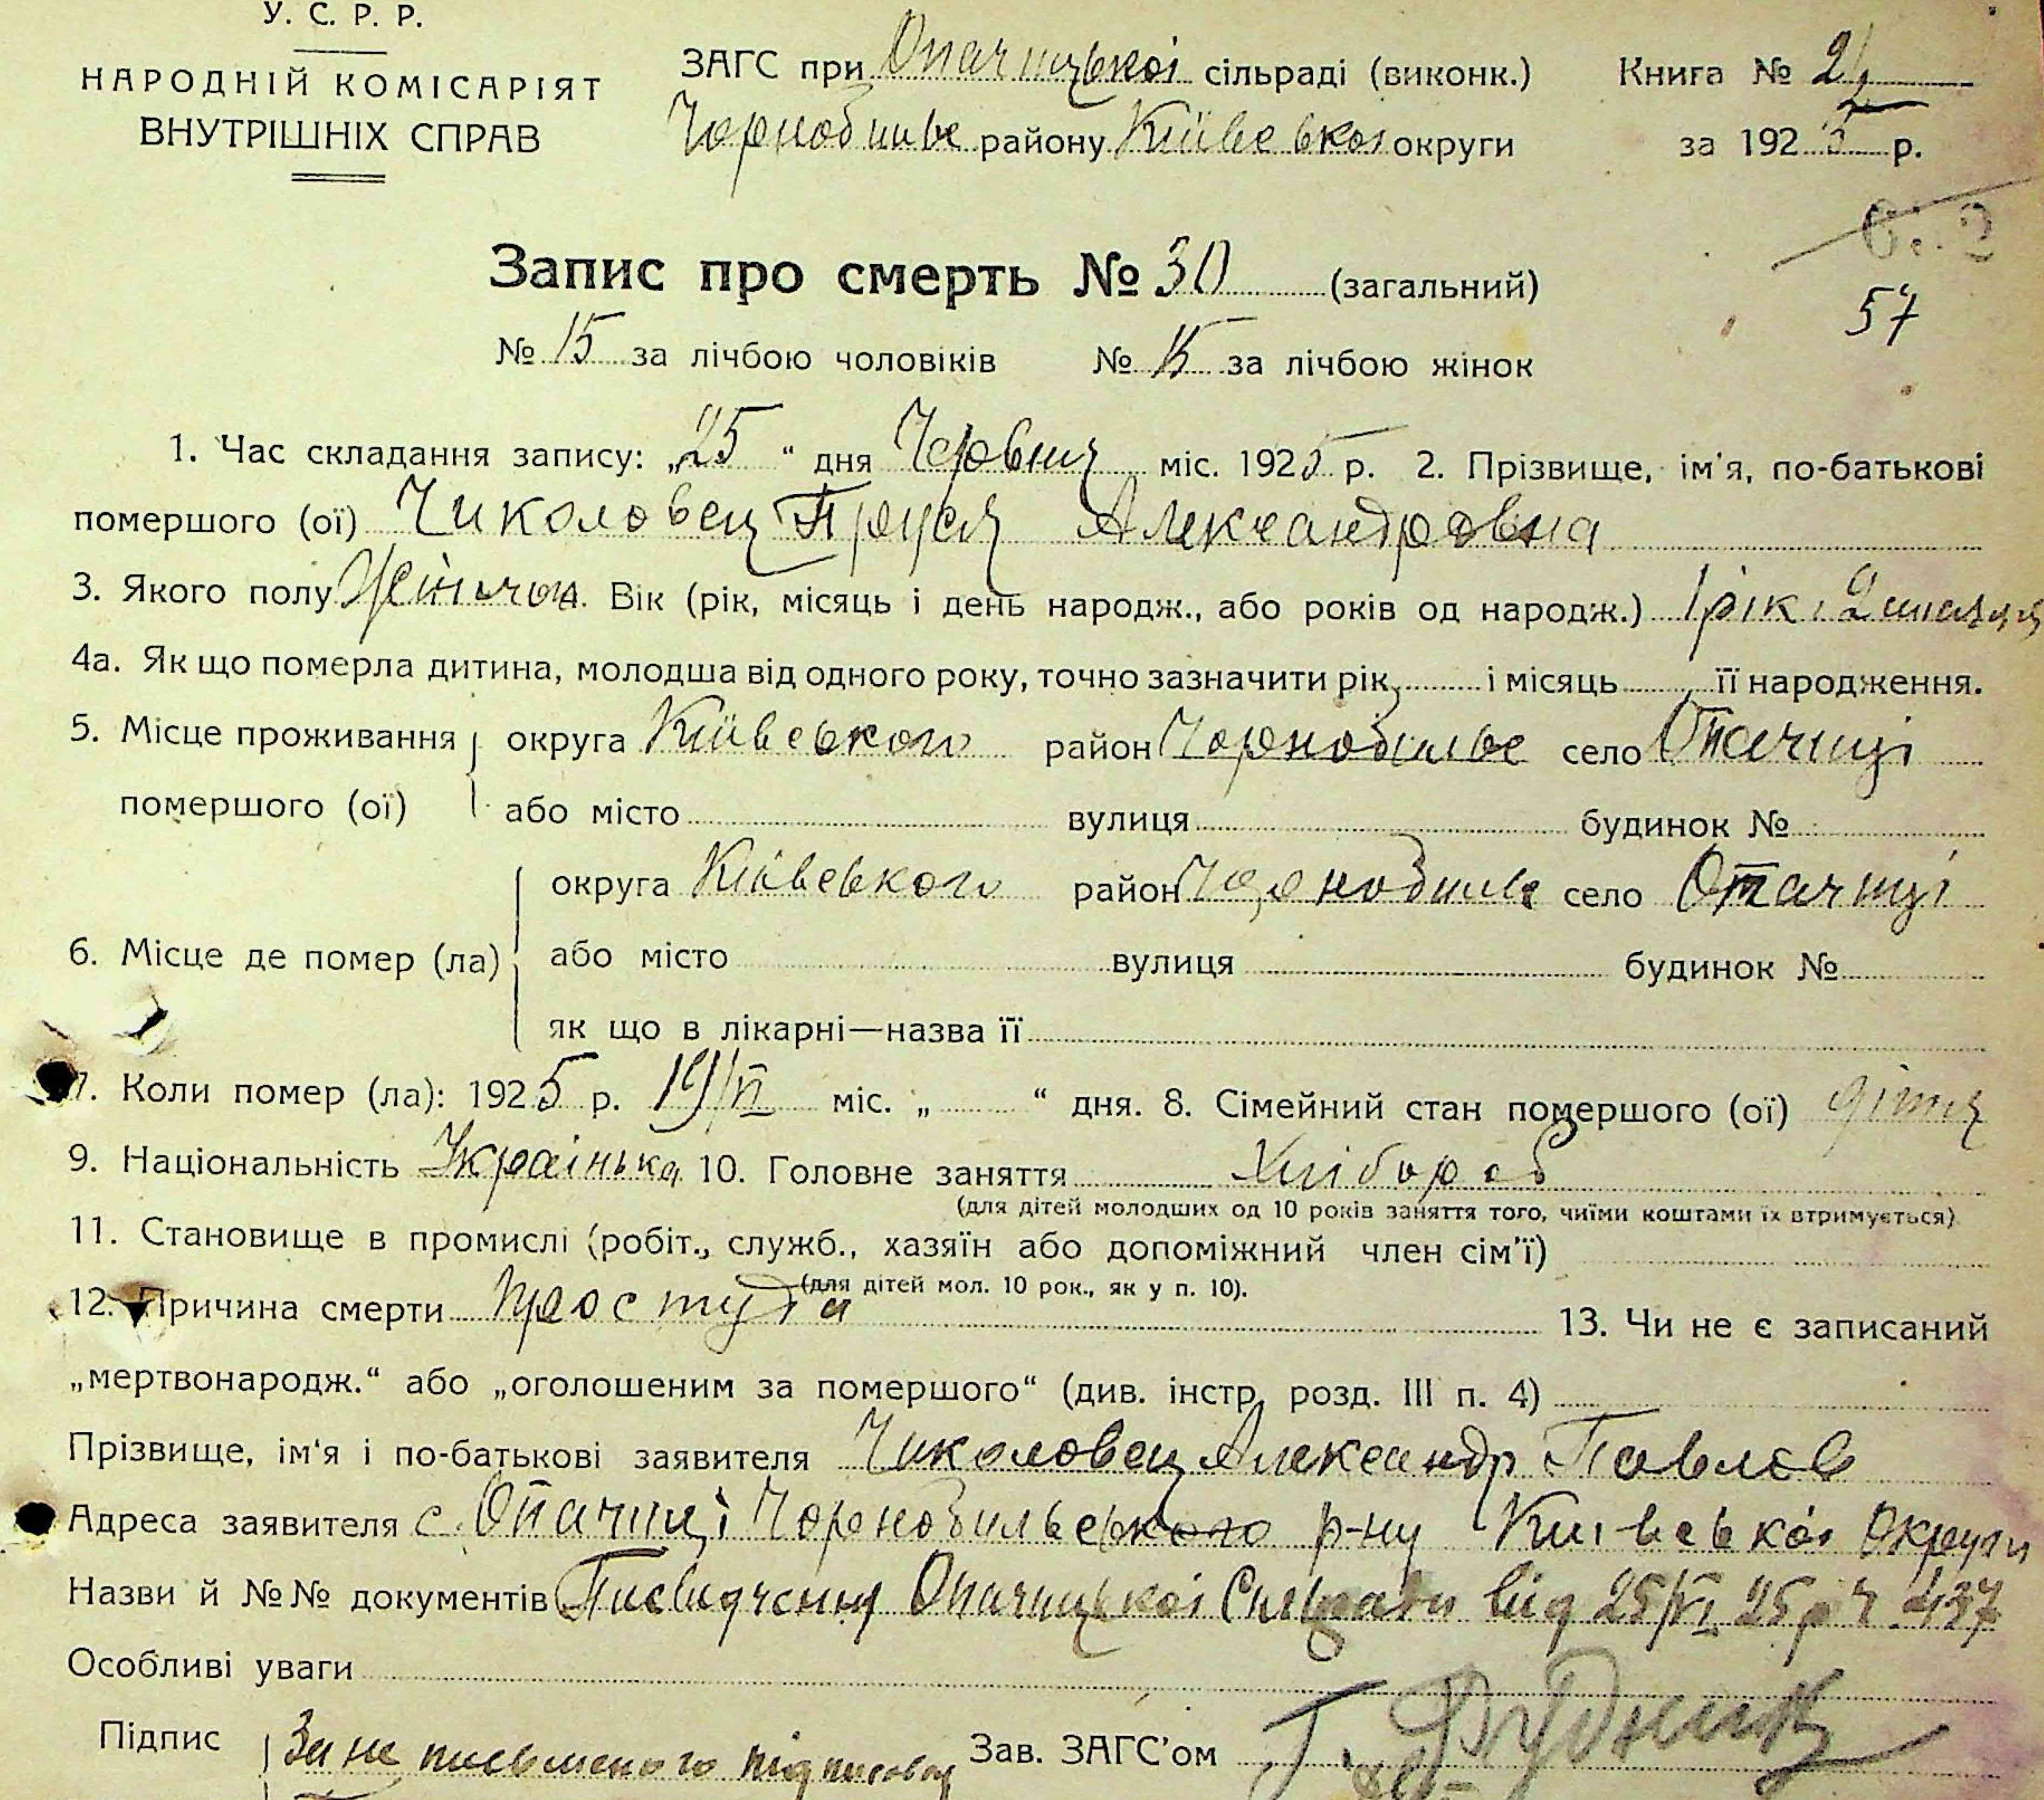 У. С. Р. Р.
НАРОДНІЙ КОМІСАРІЯТ
ВНУТРІШНІХ СПРАВ
ЗАГС при Опачицької сільраді (виконк.)
Чорнобильс району Київської округи
Книга №
за 1925 р.
57
Запис про смерть № 30 (загальний)
№ 15 за лічбою чоловіків № 15 за лічбою жінок
1. Час складання запису: „25 “ дня Червня міс. 1925 р. 2. Прізвище, ім'я, по-батькові
помершого (ої) Чиколовец Александровна
3. Якого полу Вік (рік, місяць і день народж., або років од народж.) 1 рік і 2
4а. Як що померла дитина, молодша від одного року, точно зазначити рік, і місяць її народження.
5. Місце проживання округа Київського район Чорнобильс село Опачиці
помершого (ої) або місто вулиця будинок №
округа Київського район Чорнобильс село Опачиці
6. Місце де помер (ла) або місто вулиця будинок №
як що в лікарні—назва її
7. Коли помер (ла): 1925 р. 19/VI міс. „ “ дня. 8. Сімейний стан помершого (ої)
9. Національність Українька 10. Головне заняття Хлібороб
(для дітей молодших од 10 років заняття того, чиїми коштами їх втримується)
11. Становище в промислі (робіт., служб., хазяїн або допоміжний член сім'ї)
(для дітей мол. 10 рок., як у п. 10).
12. Причина смерти Простуда 13. Чи не є записаний
„мертвонародж.“ або „оголошеним за помершого“ (див. інстр. розд. III п. 4)
Прізвище, ім'я і по-батькові заявителя Чиколовец Александр Павлов
Адреса заявителя с. Опачиці Чорнобильського р-ну Київської Округи
Назви й №№ документів Посвидчення Опачицької Сільради від 25/VI 25 р Ч. 437
Особливі уваги
Підпис За не письменого підписав Зав. ЗАГС'ом